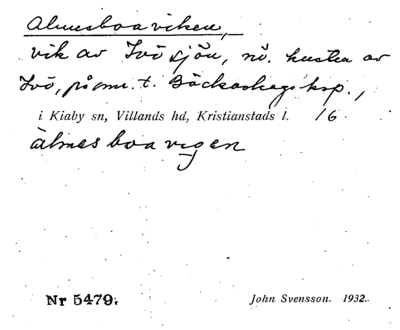 Almesboaviken,
vik av Ivösjön, nö. kusten av
Ivö, på omr. t. Bäckaskogs ksp.,
i Kiaby sn, Villands hd, Kristianstads l. 16
älmesboavigen
Nr 5479. John Svensson. 1932.